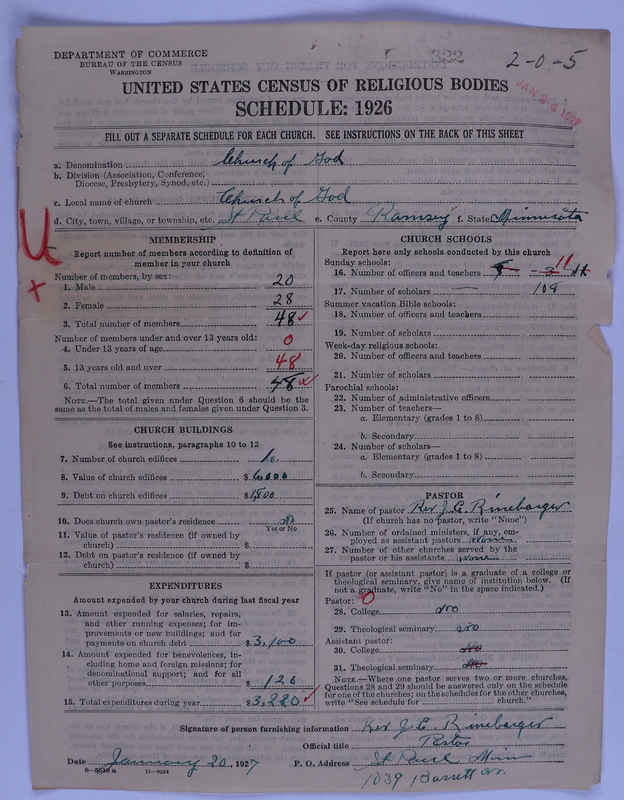 DEPARTMENT OF COMMERCE
BUREAU OF THE CENSUS
WASHINGTON
322
2-0-5
UNITED STATES CENSUS OF RELIGIOUS BODIES
SCHEDULE: 1926
FILL OUT A SEPARATE SCHEDULE FOR EACH CHURCH. SEE INSTRUCTIONS ON THE BACK OF THIS SHEET
a. Denomination Church of God
b. Division (Association, Conference, Diocese, Presbytery, Synod, etc.)
c. Local name of church Church of God
d. City, town, village, or township, etc. St Paul e. County Ramsey f. State Minnesota
MEMBERSHIP
Report number of members according to definition of member in your church
Number of members, by sex:
1. Male 20
2. Female 28
3. Total number of members 48
Number of members under and over 13 years old:
4. Under 13 years of age 0
5. 13 years old and over 48
6. Total number of members 48
NOTE.—The total given under Question 6 should be the same as the total of males and females given under Question 3.
CHURCH BUILDINGS
See instructions, paragraphs 10 to 12
7. Number of church edifices
8. Value of church edifices $6000
9. Debt on church edifices $1,500
10. Does church own pastor's residence No
Yes or No
11. Value of pastor's residence (if owned by church) $
12. Debt on pastor's residence (if owned by church) $
EXPENDITURES
Amount expended by your church during last fiscal year
13. Amount expended for salaries, repairs, and other running expenses; for improvements or new buildings; and for payments on church debt $3,100
14. Amount expended for benevolences, including home and foreign missions; for denominational support; and for all other purposes $120
15. Total expenditures during year $3,220
CHURCH SCHOOLS
Report here only schools conducted by this church
Sunday schools:
16. Number of officers and teachers 11
17. Number of scholars 108
Summer vacation Bible schools:
18. Number of officers and teachers
19. Number of scholars
Week-day religious schools:
20. Number of officers and teachers
21. Number of scholars
Parochial schools:
22. Number of administrative officers
23. Number of teachers—
a. Elementary (grades 1 to 8)
b. Secondary
24. Number of scholars—
a. Elementary (grades 1 to 8)
b. Secondary
PASTOR
25. Name of pastor Rev J. E. Rinebarger
(If church has no pastor, write "None")
26. Number of ordained ministers, if any, employed as assistant pastors None
27. Number of other churches served by the pastor or his assistants None
If pastor (or assistant pastor) is a graduate of a college or theological seminary, give name of institution below. (If not a graduate, write "No" in the space indicated.)
Pastor: 0
28. College No
29. Theological seminary No
Assistant pastor:
30. College No
31. Theological seminary No
NOTE.—Where one pastor serves two or more churches, Questions 28 and 29 should be answered only on the schedule for one of the churches; on the schedules for the other churches, write "See schedule for church."
Signature of person furnishing information Rev J. E. Rinebarger
Official title Pastor
Date January 20, 1927 P. O. Address St Paul Minn
1039 Barrett
8—5518a 11—9034